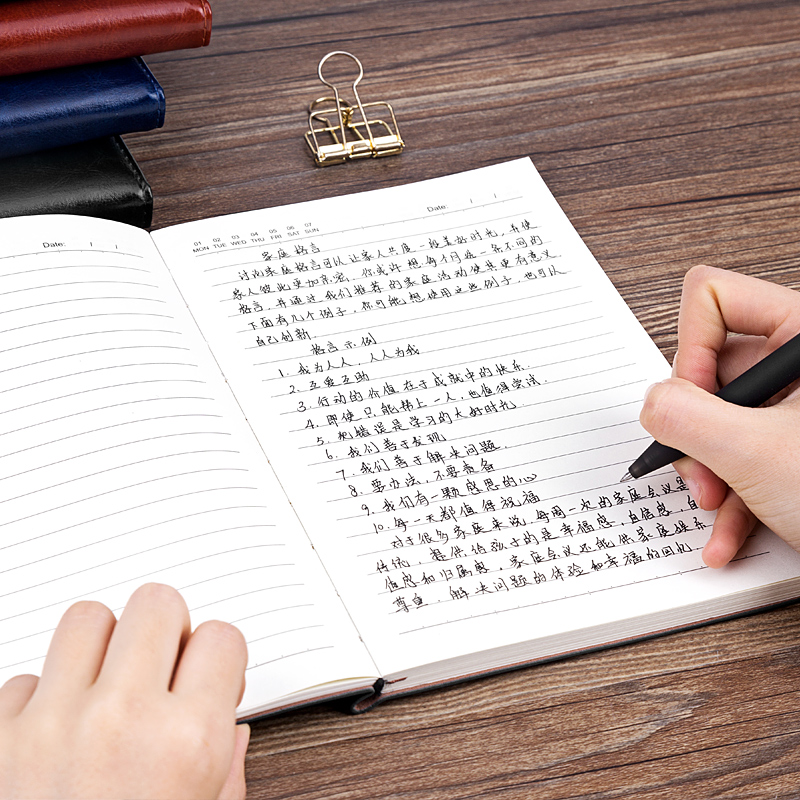 Date: / /
01 02 03 04 05 06 07
MON TUE WED THU FRI SAT SUN
Date: / /
家庭格言
讨论家庭格言可以让家人共度一段美好时光，并使
家人彼此更加亲密。你或许想每个月选一条不同的
格言，并通过我们推荐的家庭活动使其更有意义
下面有几个例子，你可能想使用这些例子，也可以
自己创新
格言示例
1. 我为人人，人人为我
2. 互爱互助
3. 行动的价值在于成就中的快乐.
4. 即使只能搭上一人，也值得尝试.
5. 犯错误是学习的大好时光
6. 我们善于发现
7. 我们善于解决问题.
8. 要办法，不要责备
9. 我们有一颗感恩的心
10. 每一天都值得祝福
对于很多家庭来说，每周一次的家庭会议是
传统。提供给孩子的是幸福感，自信感，自
信感和归属感，家庭会议还能供家庭娱乐
尊重，解决问题的体验和幸福的回忆